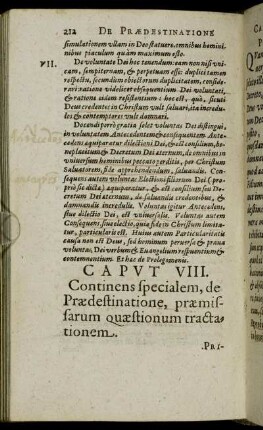 212 DE PRÆDESTINATIONE
simulationem ullam in Deo statuere, omnibus homini-
bus piaculum quàm maximum esse.
VII. De voluntate Dei hoc tenendum: eam non nisi vni-
cam, sempiternam, & perpetuam esse: duplici tamen
respectu, secundum obiectorum duplicitatem, conside-
rari: ratione videlicet obsequentium Dei voluntati,
& ratione eidem resistentium: hoc est, quâ, sicuti
Deus credentes in Christum vult saluare, ita incredu-
los & contemptores vult damnari.
Deinde hoc pro ratio solet voluntas Dei distingui,
in voluntatem Antecedentem & consequentem Ante-
cedens æquiparatur dilectioni Dei, & est consilium, be-
neplacitum & Decretum Dei æternum, de omnibus in
vniuersum hominibus peccato perditis, per Christum
Saluatorem, fide apprehendendum, saluandis. Conse-
quens autem voluntas Electioni filiorum Dei (pro-
priè sic dicta) æquiparatur, & est consilium seu De-
cretum Dei æternum, de saluandis credentibus, &
damnandis incredulis. Voluntas igitur Antecedens,
siue dilectio Dei, est vniuersalis. Voluntas autem
Consequens, siue electio, quia fide in Christum limita-
tur, particularis est. Huius autem Particularitatis
causa non est Deus, sed hominum peruersa & praua
voluntas, Dei verbum & Euangelium respuentium &
contemnentium Et hæc de Prolegomenis.
CAPVT VIII.
Continens specialem, de
Prædestinatione, præmis-
sarum quæstionum tracta-
tionem.
PRI-